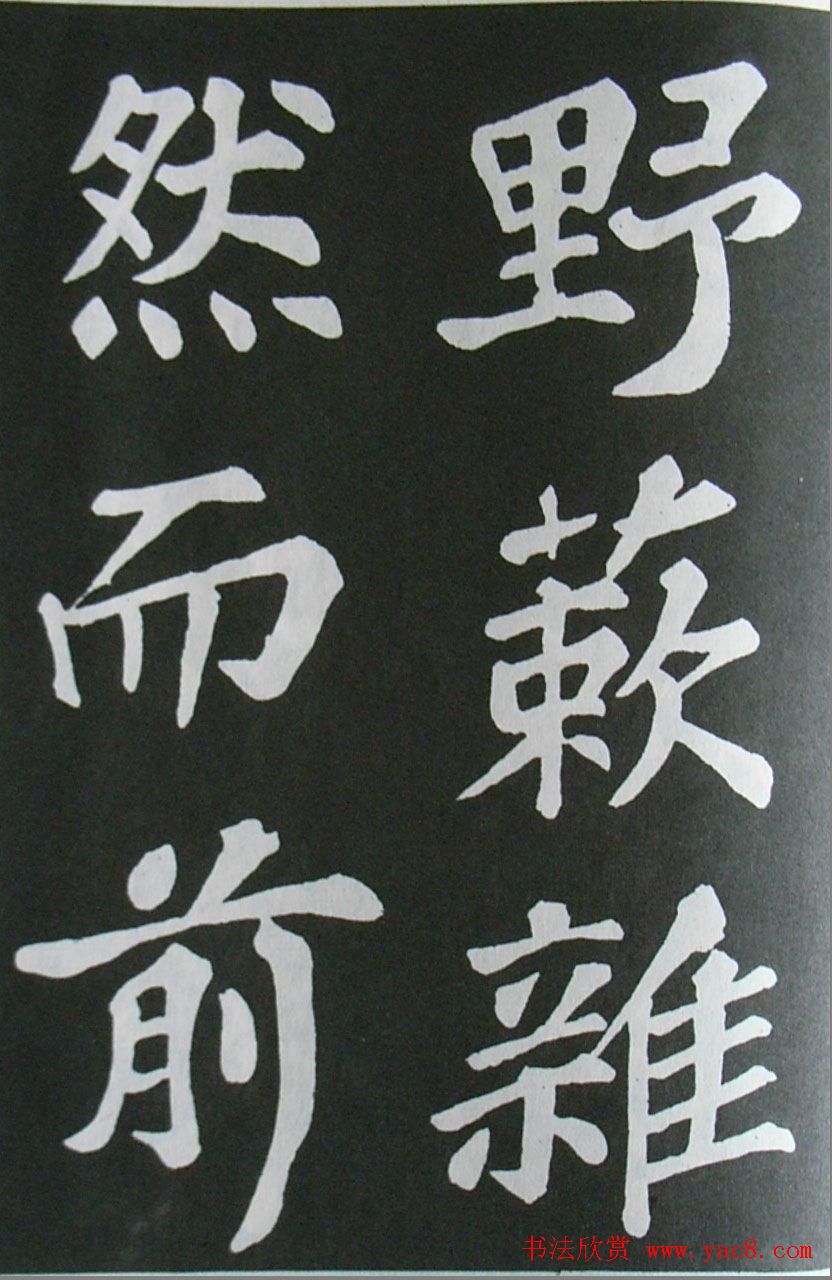 野蔌雜
然而前
书法欣赏 www.yac8.com